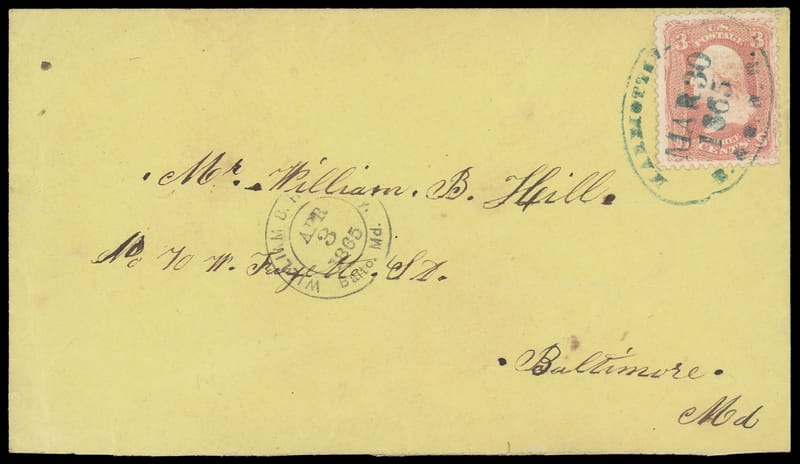 3 U.S. POSTAGE 3
MAR 30
1865
CENTS
Mr. William. B. Hill.
WILLIAM B. H
APR
3
1865
Balto. Md.
No 70 W. Fayette. St.
Baltimore.
Md